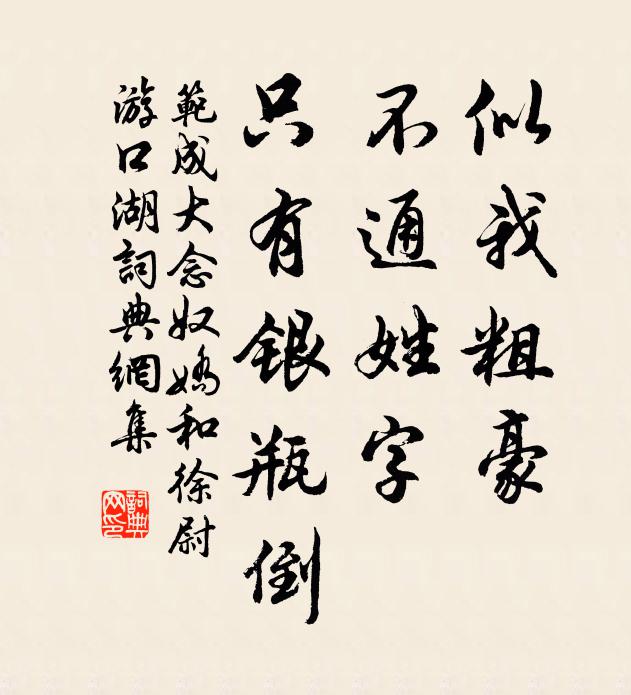 似我粗豪
不通姓字
只有銀瓶倒
範成大念奴嬌和徐尉
游口湖詞典網集
詞典网印